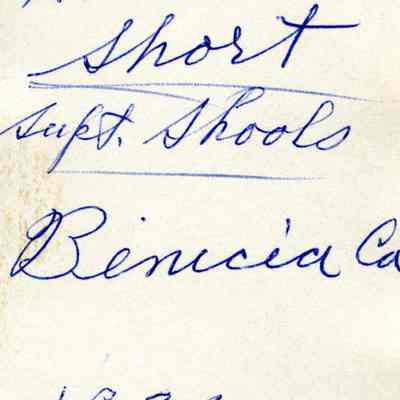 Short
Supt. Shools
Benicia Ca